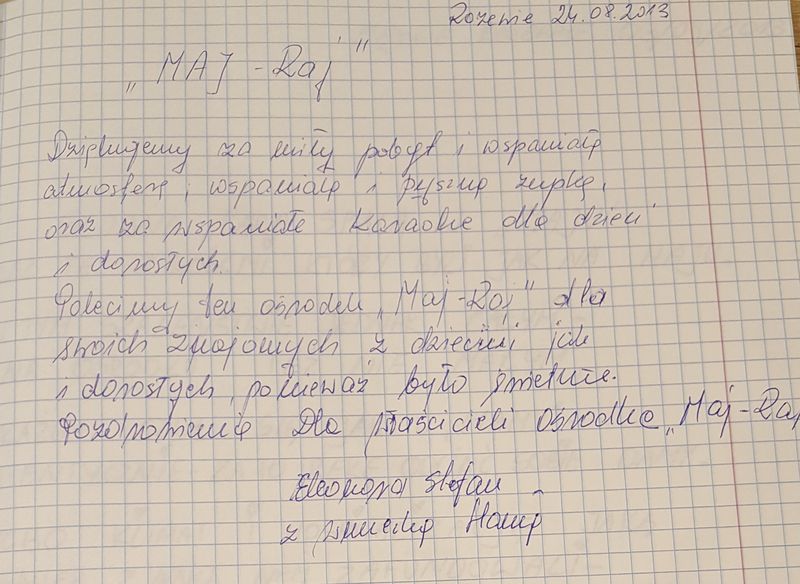 Rozewie 24.08.2013
„MAJ-Raj"
Dziękujemy za miły pobyt i wspaniałą
atmosferę, wspaniałą i pyszną zupkę,
oraz za wspaniałe Karaoke dla dzieci
i dorosłych.
Polecimy ten ośrodek „Maj-Raj" dla
swoich znajomych z dziećmi jak
i dorosłych, ponieważ było świetnie.
Pozdrowienia Dla właścicieli Ośrodka „Maj-Raj
Eleonora Stefan
z wnuczką Hanią